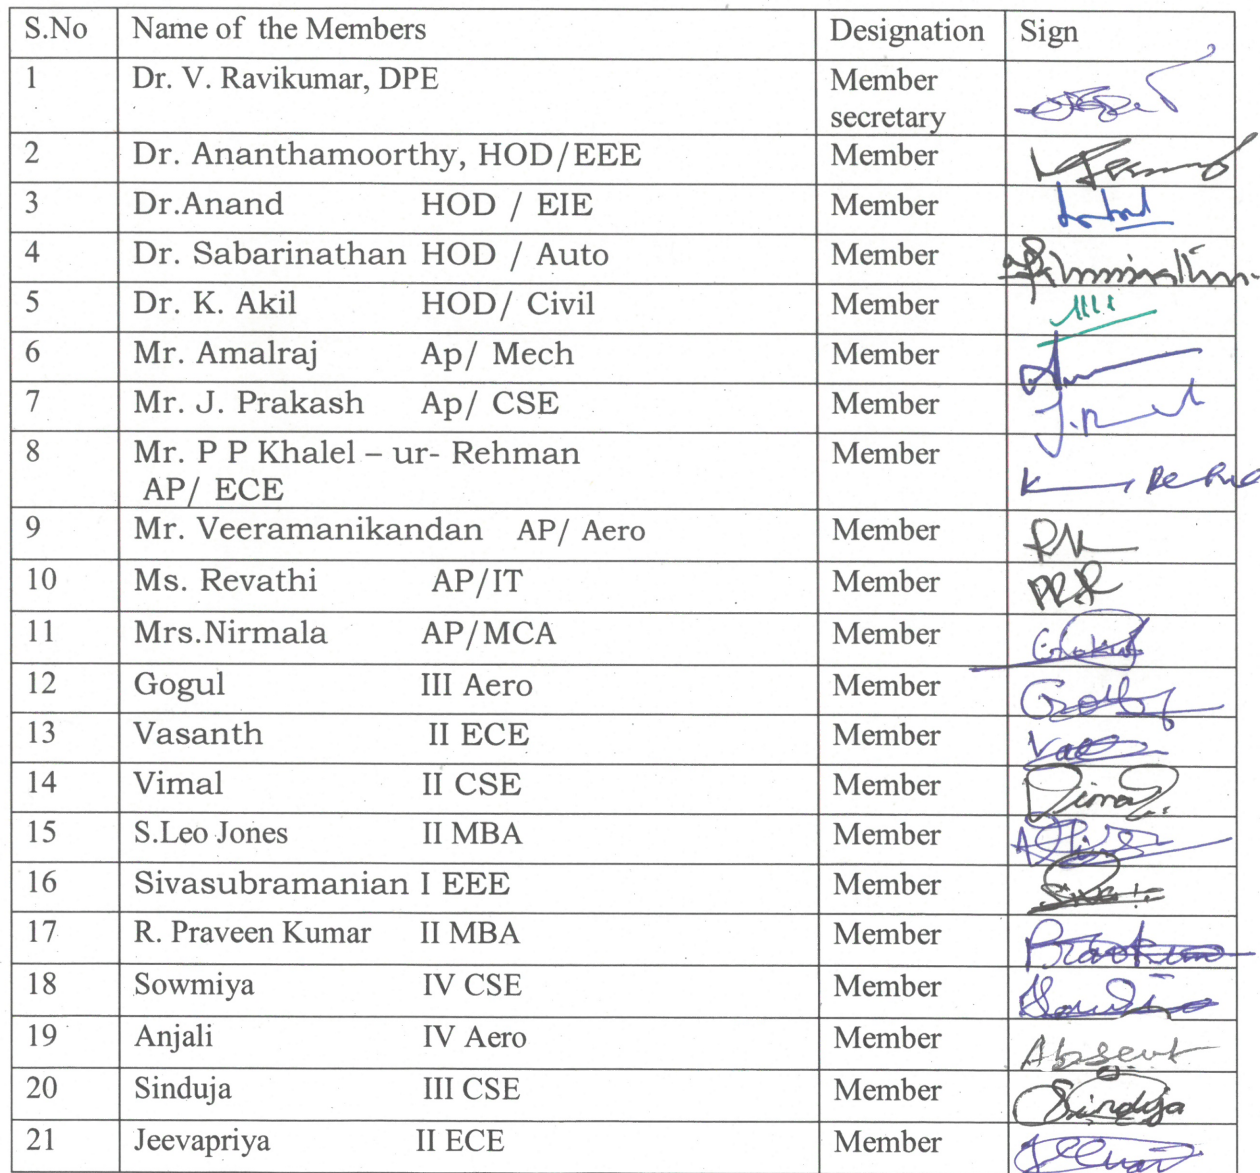 S.No Name of the Members Designation Sign
1 Dr. V. Ravikumar, DPE Member
secretary
2 Dr. Ananthamoorthy, HOD/EEE Member
3 Dr.Anand HOD / EIE Member
4 Dr. Sabarinathan HOD / Auto Member
5 Dr. K. Akil HOD/ Civil Member
6 Mr. Amalraj Ap/ Mech Member
7 Mr. J. Prakash Ap/ CSE Member
8 Mr. P P Khalel – ur- Rehman Member
AP/ ECE
9 Mr. Veeramanikandan AP/ Aero Member
10 Ms. Revathi AP/IT Member
11 Mrs.Nirmala AP/MCA Member
12 Gogul III Aero Member
13 Vasanth II ECE Member
14 Vimal II CSE Member
15 S.Leo Jones II MBA Member
16 Sivasubramanian I EEE Member
17 R. Praveen Kumar II MBA Member
18 Sowmiya IV CSE Member
19 Anjali IV Aero Member Absent
20 Sinduja III CSE Member Sinduja
21 Jeevapriya II ECE Member